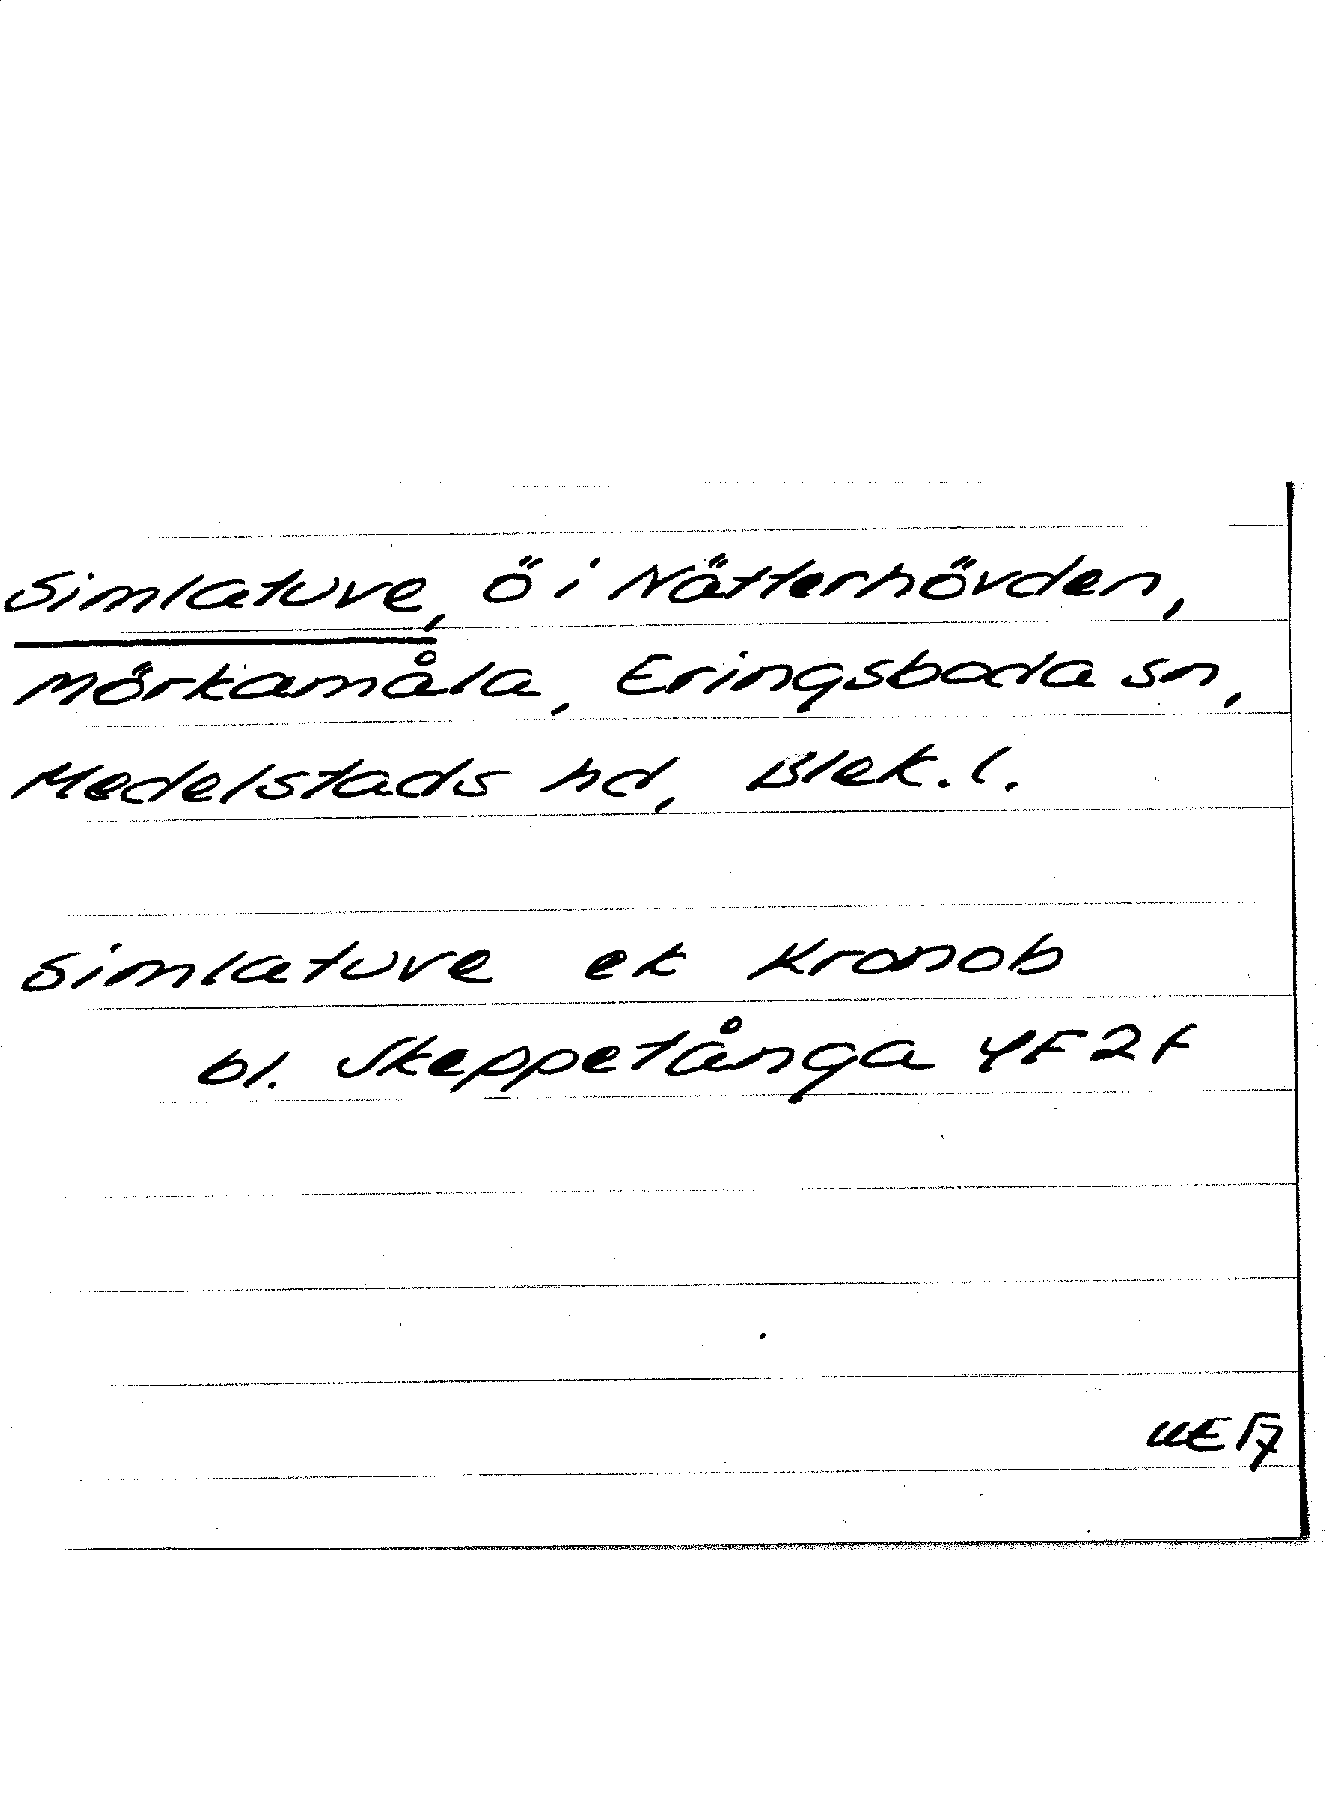 Simlature, ö i Nätterhövden,
Mörkamåla, Eringsboda sn,
Medelstads hd, Blek. l.
Simlature ek Kronob
bl. Skeppetånga 4F2f